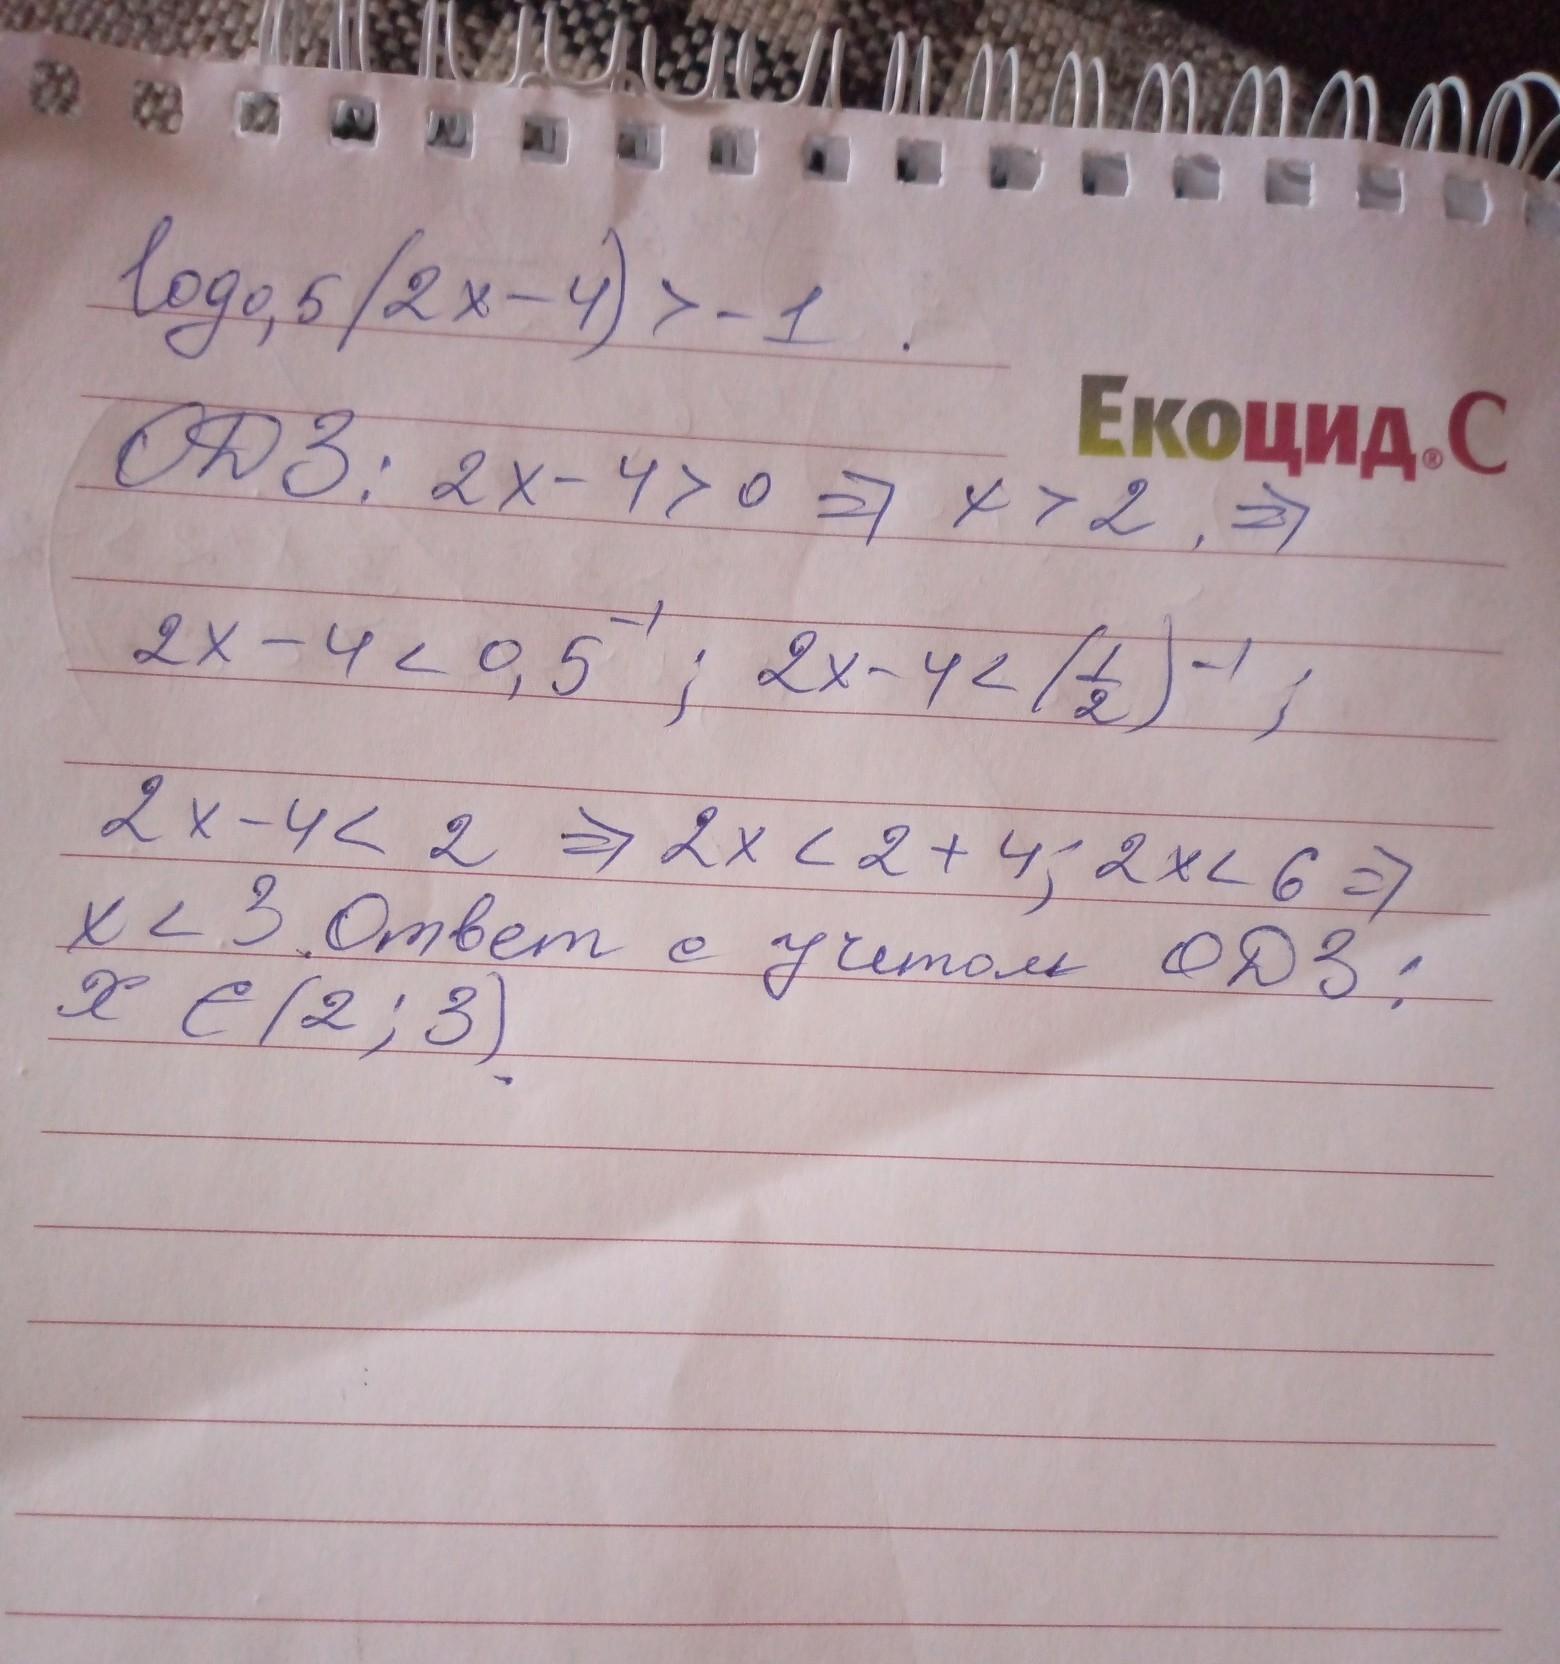 log₀,₅(2x-4)>-1.
Екоцид®С
ОДЗ: 2x-4>0 ⇒ x>2. ⇒
2x-4<0,5⁻¹; 2x-4<(1/2)⁻¹;
2x-4<2 ⇒ 2x<2+4; 2x<6 ⇒
x<3. Ответ с учетом ОДЗ:
x∈(2;3).